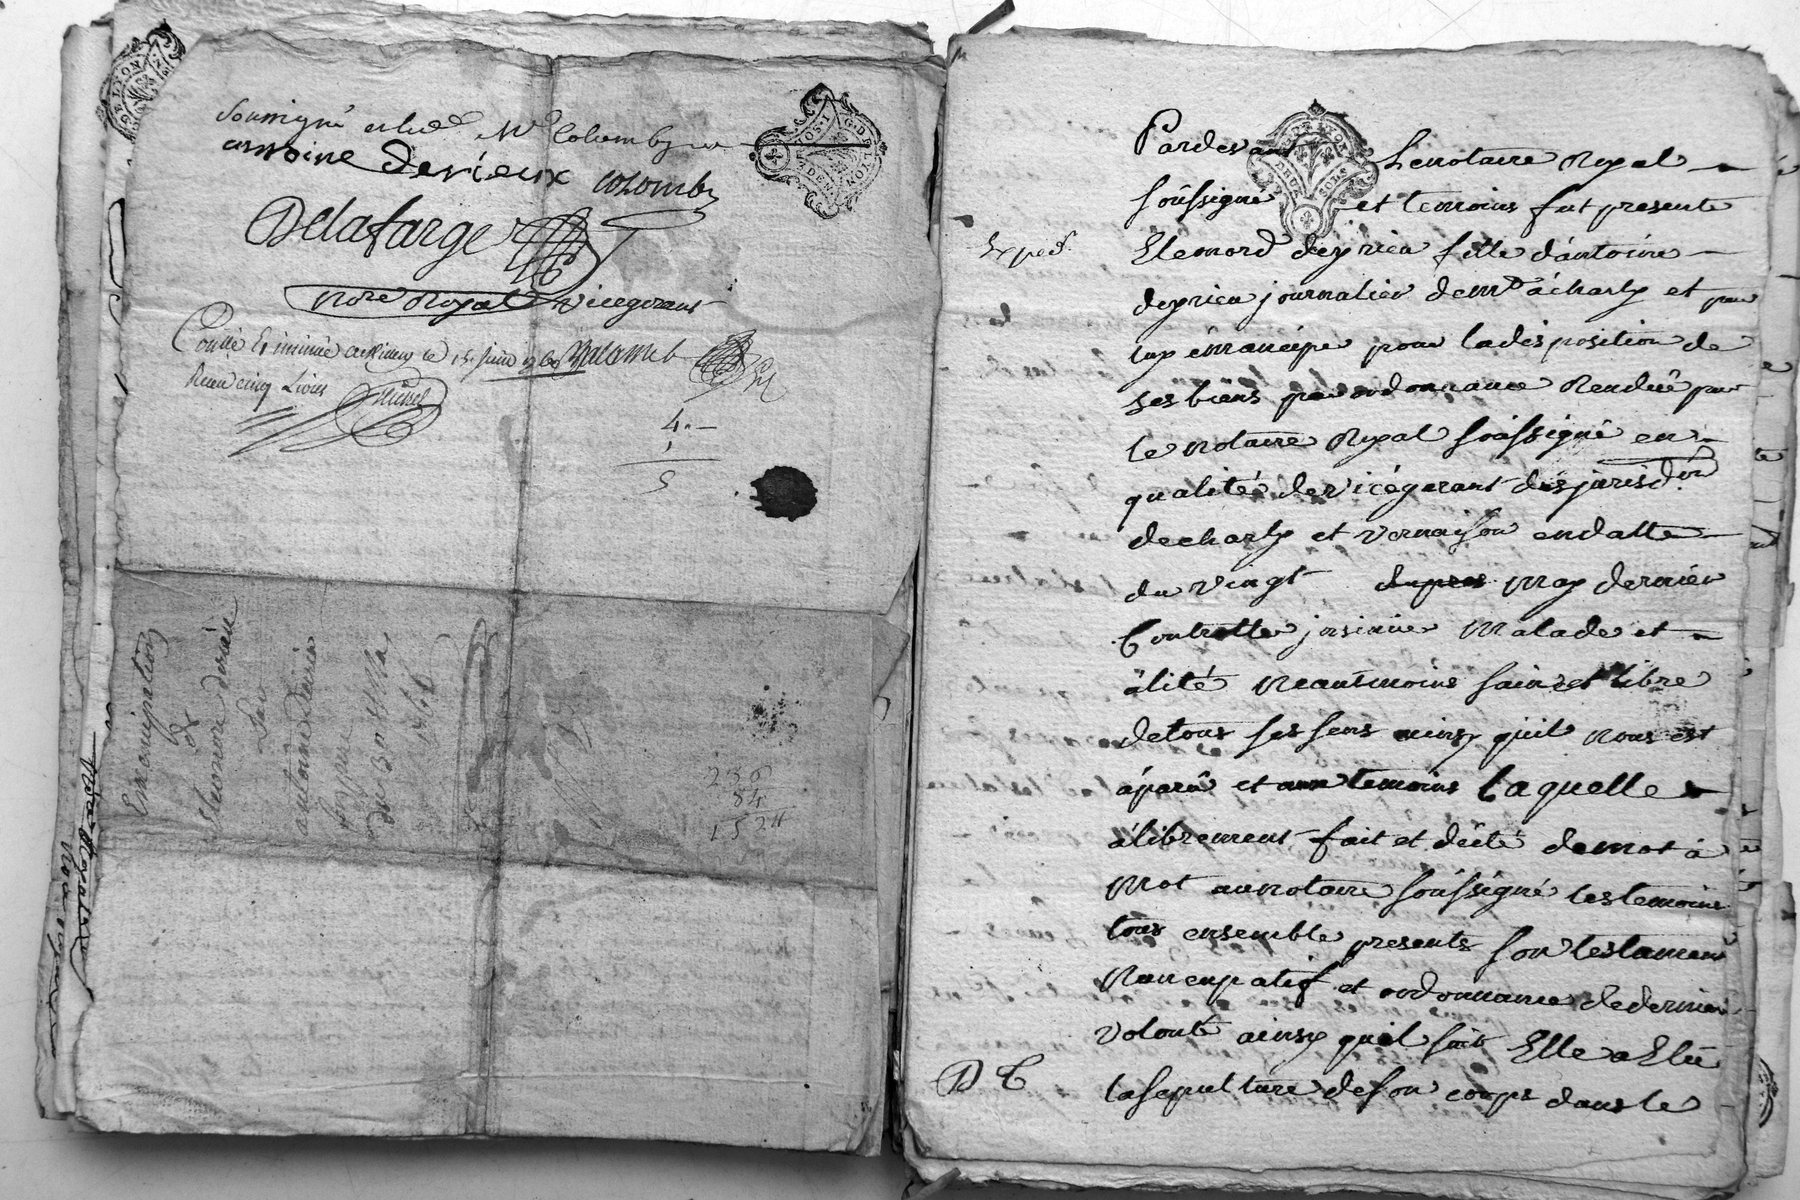 soussigné et led. Mr Colomby
antoine derieux colomby
Delafarge
Nore Royal vicegerant
le 15 Juin
Receu cinq Livres
Michel
4.—
1
5
Emancipation
de
Eleonord derieu
Par
antoine
du 30
236
84
1524
Pardevant Le notaire Royal
soussigné et temoins fut presente
Exped.
Eleonord deyrieu fille d'antoine
deyrieu journalier demt à charly et par
luy émancipé pour la disposition de
ses biens par ordonnance Rendüe par
le notaire Royal soussigné en
qualité de vicégerant des jurisdon
de charly et vernaison en datte
du vingt May dernier
Controllé jnsinüé Malade et
alité Neantmoins saine et libre
de tous ses sens ainsy qu'il nous est
áparû et aux temoins Laquelle
á librement fait et dicté de mot à
mot au notaire soussigné les temoins
tous ensemble presents son testament
Nuncupatif et ordonnance de derniere
volonté ainsy quil suit Elle a Elû
la sepulture de son corps dans le
D C